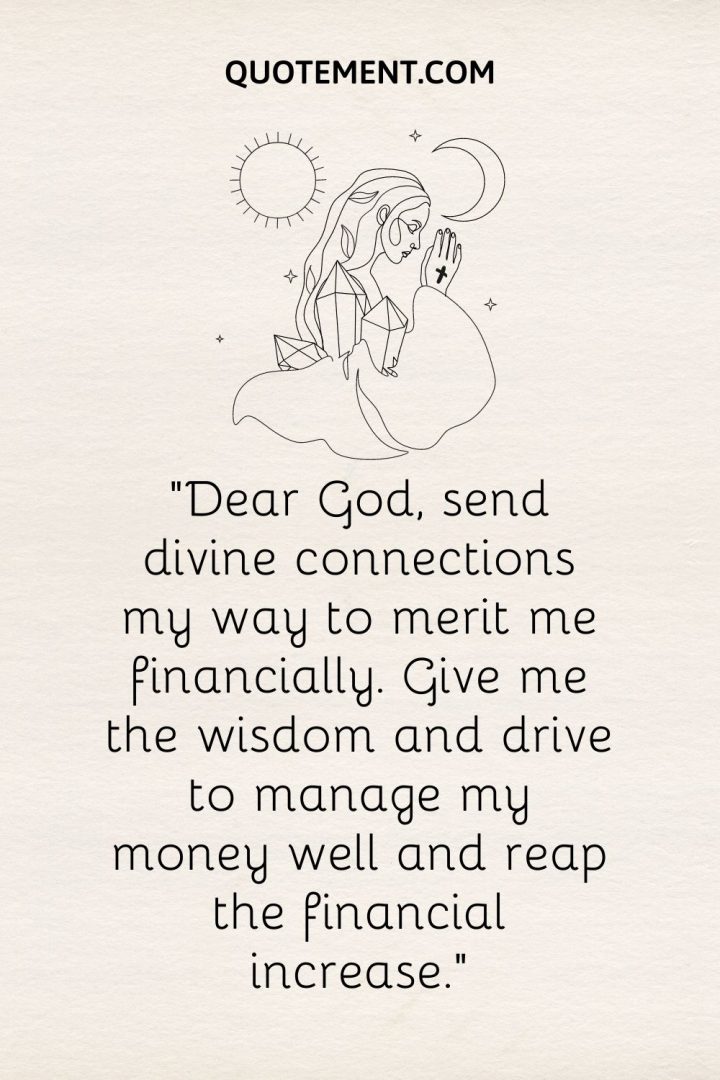 QUOTEMENT.COM
"Dear God, send
divine connections
my way to merit me
financially. Give me
the wisdom and drive
to manage my
money well and reap
the financial
increase."